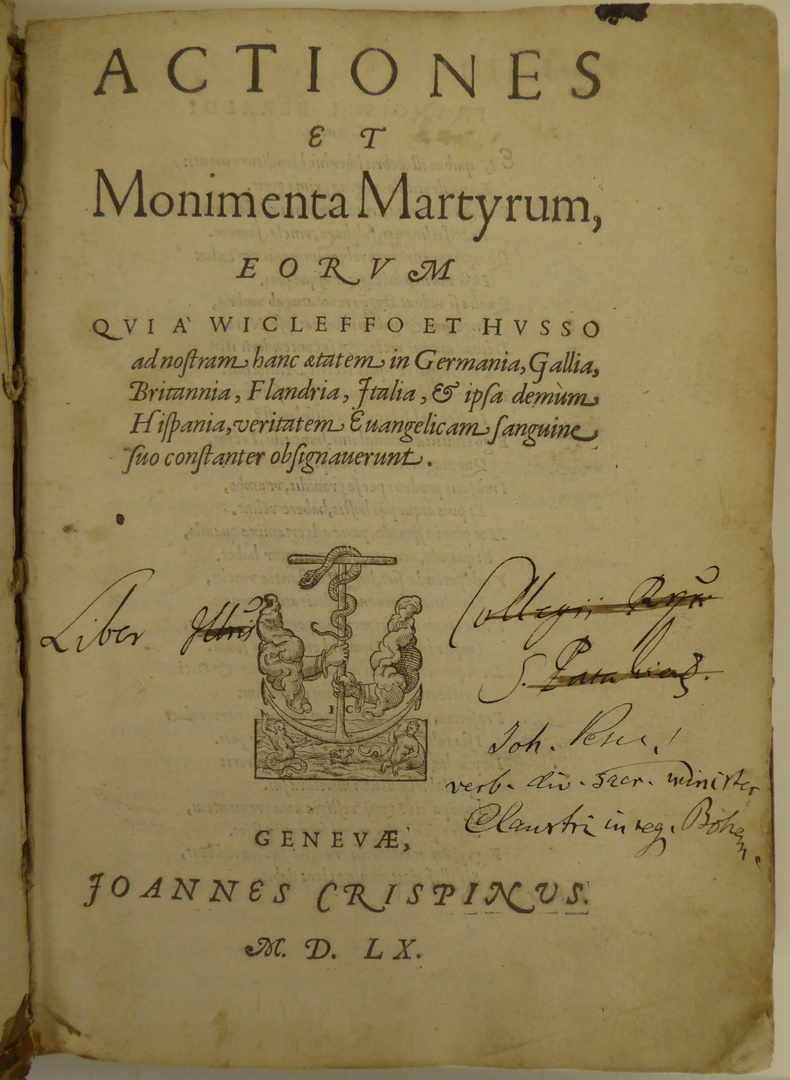 ACTIONES
ET
Monimenta Martyrum,
EORVM
QVI A' WICLEFFO ET HVSSO
ad noſtram hanc ætatem in Germania, Gallia,
Britannia, Flandria, Italia, & ipſa demùm
Hiſpania, veritatem Euangelicam ſanguine
ſuo conſtanter obſignauerunt.
Liber
Collegii
S.
I C
Joh.
verb. div. sacr. minister
Claustri in reg. Bohem.
GENEVÆ,
JOANNES CRISPINVS.
M. D. LX.